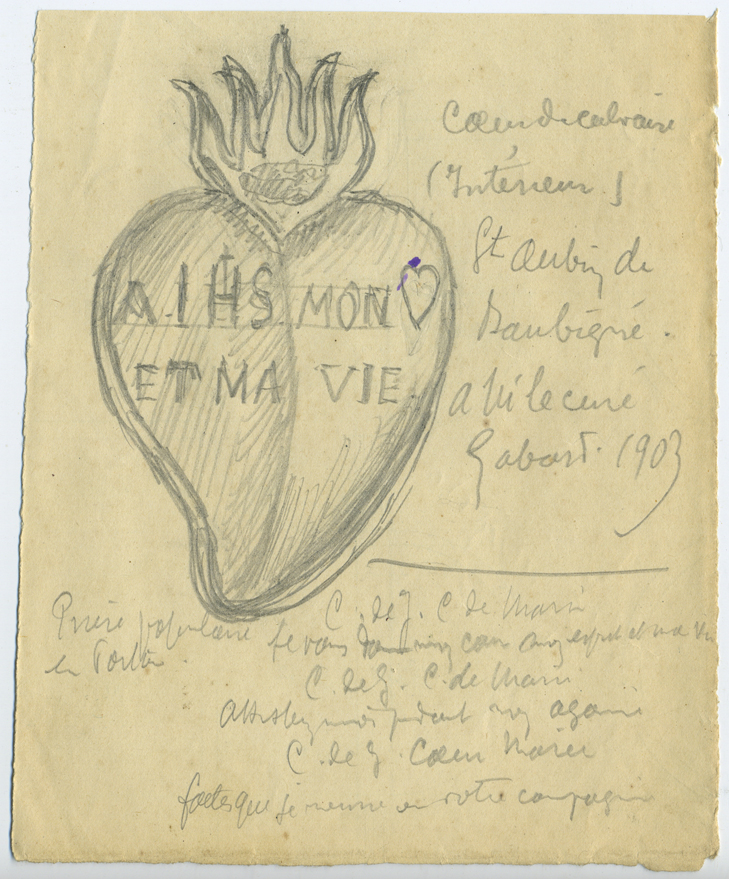 A. IHS. MON ♡
ET MA VIE.
Cœur de calvaire
(Intérieur)
St Aubin de
Baubigné.
a Mr le curé
Gabard. 1903
Prière populaire
en Poitou
C. de J. C de Marie
je vous donne mon cœur mon esprit et ma vie
C. de J. C. de Marie
Assistez moi pendant mon agonie
C. de J. Cœur Marie
faites que je meure en votre compagnie